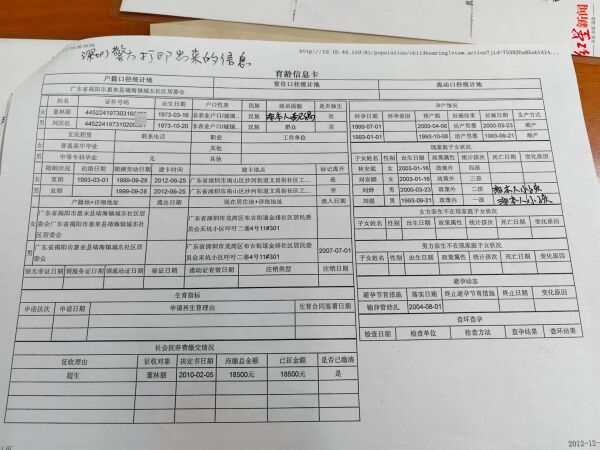 深圳警方打印出来的信息
育龄信息卡
户籍口径统计地 常住口径统计地 流动口径统计地
广东省揭阳市惠来县靖海镇城东社区居委会
姓名 证件号码 出生日期 户口性质 民族 政治面貌 是否独生
女 董林丽 1973-03-16 非农业户口/城镇 否
男 1973-10-20 非农业户口/城镇 群众 否
文化程度 联系电话 职业 工作单位
女 普通高中毕业 其他
男 中等专科毕业 无 其他
婚姻状况 初婚日期 婚姻变动日期 建卡日期 建卡地点 标记离开
女 复婚 1993-03-01 1999-09-28 2012-06-25 广东省深圳市南山区沙河街道文昌街社区工... 是
男 复婚 1999-09-28 2012-06-25 广东省深圳市南山区沙河街道文昌街社区工... 否
户籍地+详细地址 流出日期 现在居住地+详细地址 流入日期
女 广东省揭阳市惠来县靖海镇城东社区居委会 广东省深圳市龙岗区布吉街道金排社区居民委员会禾坑小区吓可二巷4号11#301
男 广东省揭阳市惠来县靖海镇城东社区居委会 广东省深圳市龙岗区布吉街道金排社区居民委员会禾坑小区吓可二巷4号11#301 2007-07-01
领光荣证日期 领服务证日期 领流动证日期 验证日期 流动证有效日期 注销类型 注销日期
生育指标
申请孩次 申请日期 申请再生育理由 生育合同签署日期
社会抚养费缴交情况
征收理由 征收对象 决定书日期 应缴总金额 已征金额 是否已缴清
超生 董林丽 2010-02-05 18500元 18500元 是
孕产情况
怀孕日期 怀孕原因 预产期 妊娠结果 妊娠日期 生产方式
1999-07-01 2000-04-06 出院产男婴 2000-03-23 顺产
1993-01-01 1993-10-08 出院产男婴 1993-09-21 顺产
现家庭子女状况
子女姓名 性别 出生日期 政策属性 统计孩次 死亡日期 变化原因
林安妮 女 2003-01-16 政策外 四孩
刘安娜 女 2003-01-16 政策外 三孩
男 2000-03-23 政策外 二孩
男 1993-09-21 政策内 一孩
女方亲生不在现家庭子女状况
子女姓名 性别 出生日期 政策属性 统计孩次 死亡日期 变化原因
男方亲生不在现家庭子女状况
子女姓名 性别 出生日期 政策属性 统计孩次 死亡日期 变化原因
避孕动态
避孕节育措施 落实日期 终止避孕节育措施 终止日期 变化原因
输卵管结扎 2004-08-01
查环查孕
检查日期 检查单位 检查方法 查孕结果 查环结果
2012-12-